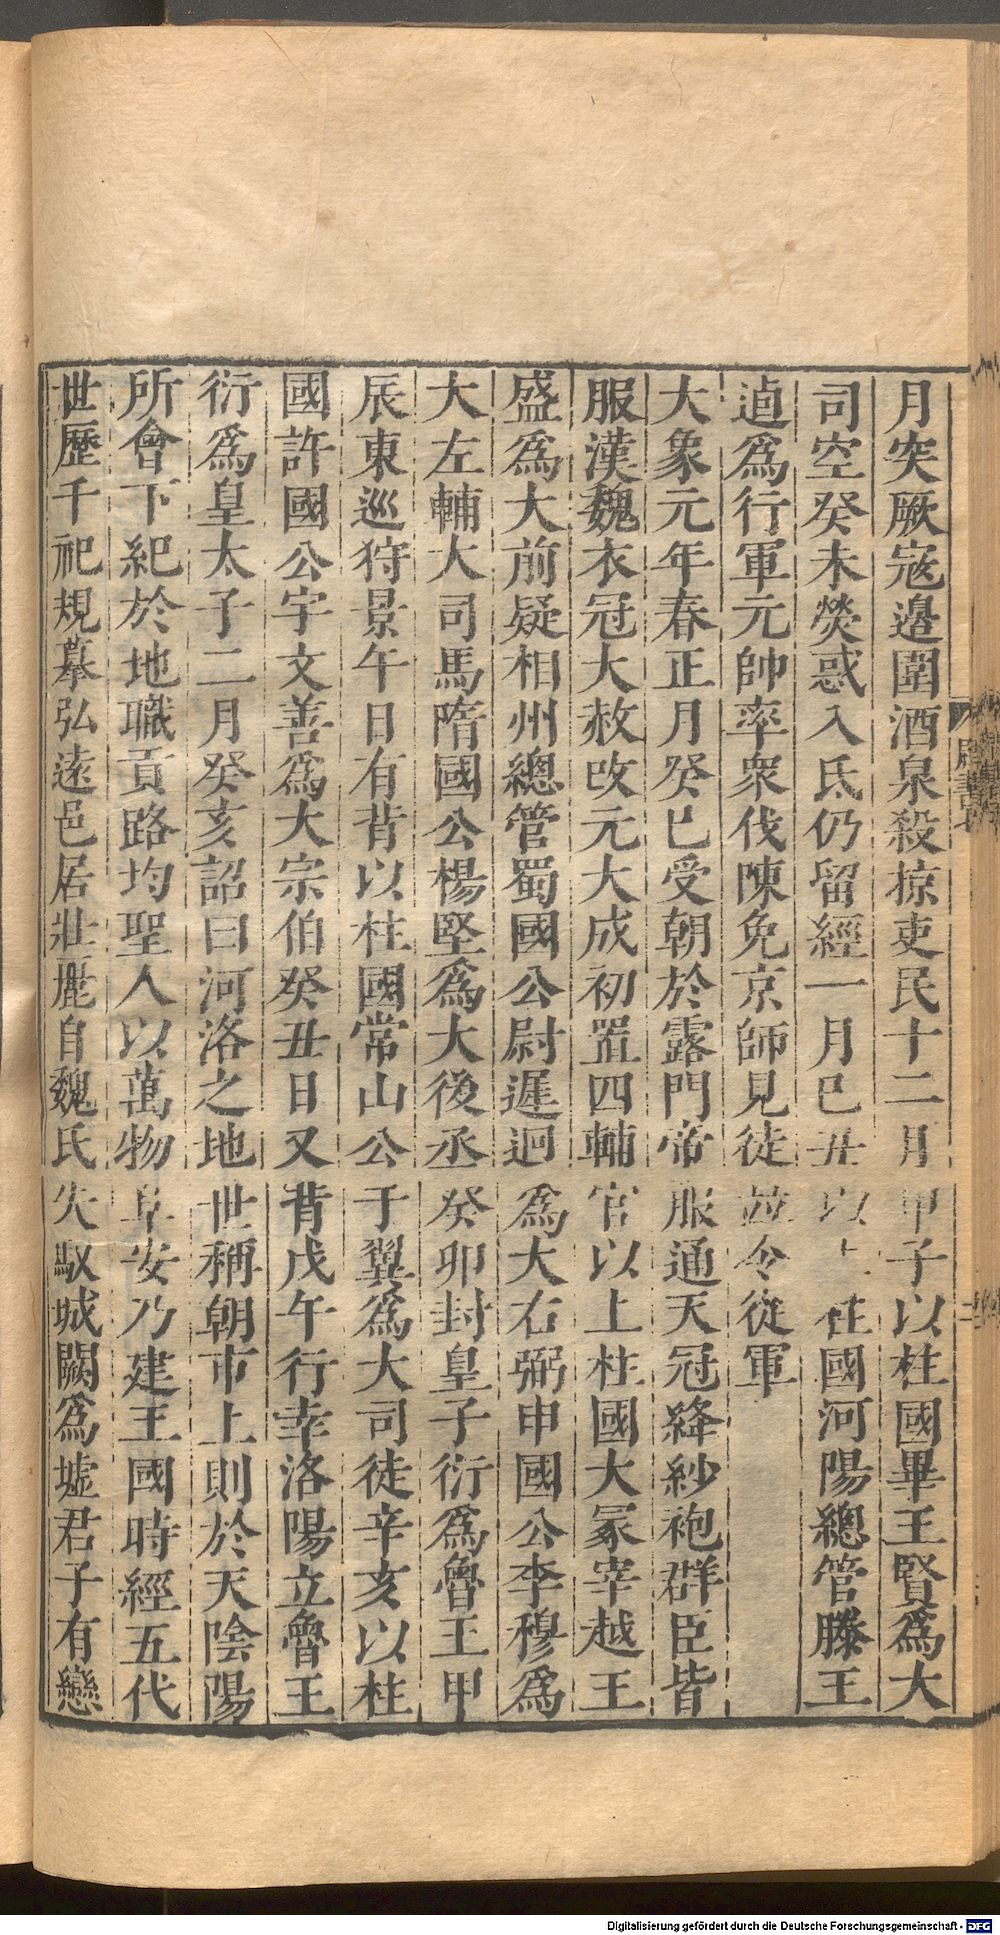 月突厥宼邊圍酒泉殺掠吏民十二月甲子以柱國畢王賢爲大
司空癸未熒惑入氐仍留經一月巳丑以上柱國河陽總管滕王
逌爲行軍元帥率衆伐陳免京師見徒並令從軍
大象元年春正月癸巳受朝於露門帝服通天冠絳紗袍群臣皆
服漢魏衣冠大赦改元大成初置四輔官以上柱國大冢宰越王
盛爲大前疑相州總管蜀國公尉遲迥爲大右弼申國公李穆爲
大左輔大司馬隋國公楊堅爲大後丞癸卯封皇子衍爲魯王甲
辰東巡狩景午日有背以柱國常山公于翼爲大司徒辛亥以柱
國許國公宇文善爲大宗伯癸丑日又背戊午行幸洛陽立魯王
衍爲皇太子二月癸亥詔曰河洛之地世稱朝市上則於天陰陽
所會下紀於地職貢路均聖人以萬物阜安乃建王國時經五代
世歷千祀規摹弘遠邑居壯麗自魏氏失馭城闕爲墟君子有戀
Digitalisierung gefördert durch die Deutsche Forschungsgemeinschaft - DFG